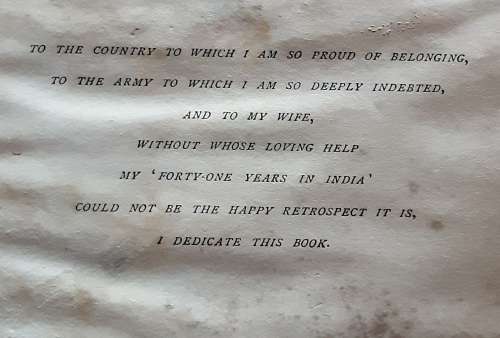 TO THE COUNTRY TO WHICH I AM SO PROUD OF BELONGING,
TO THE ARMY TO WHICH I AM SO DEEPLY INDEBTED,
AND TO MY WIFE,
WITHOUT WHOSE LOVING HELP
MY ‘FORTY-ONE YEARS IN INDIA’
COULD NOT BE THE HAPPY RETROSPECT IT IS,
I DEDICATE THIS BOOK.